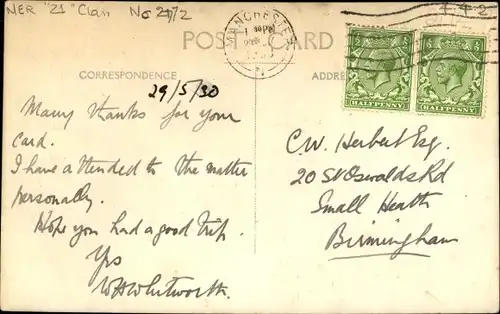 NER "21" Class No 2472
MANCHESTER
POST CARD
CORRESPONDENCE
ADDRESS
29/5/30
HALFPENNY
HALFPENNY
Many thanks for your
card.
I have attended to the matter
personally.
Hope you had a good trip.
Yrs
W.H. Whitworth.
C.W. Herbert Esq.
20 St Oswalds Rd
Small Heath
Birmingham